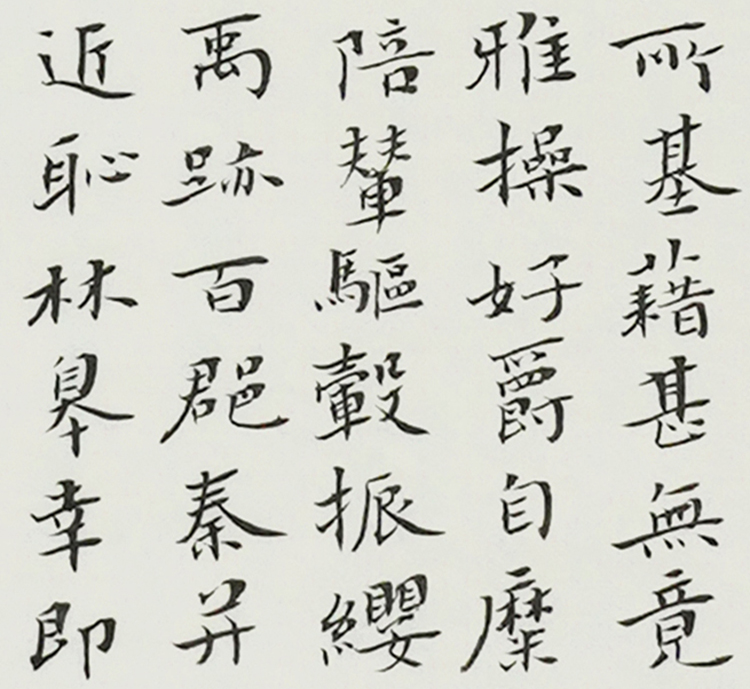 所基藉甚無竟
雅操好爵自縻
陪輦驅轂振纓
禹跡百郡秦并
近恥林皋幸即